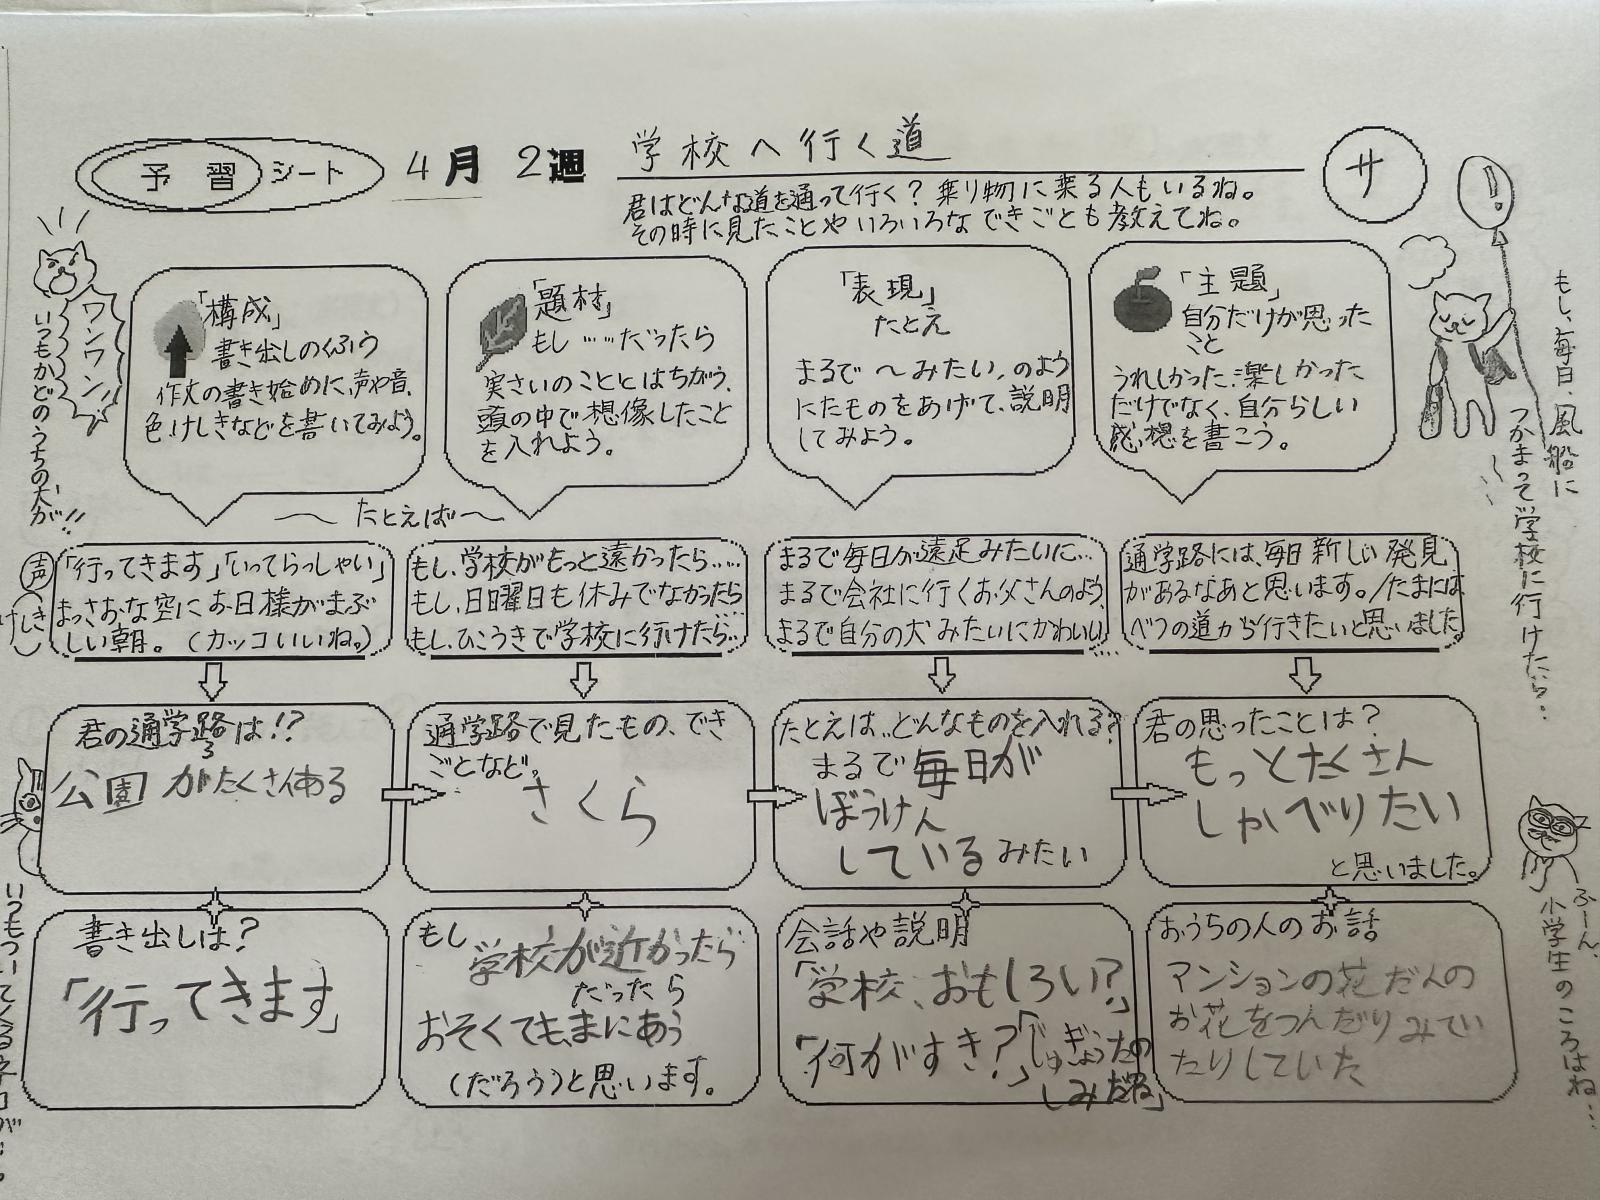 予習シート 4月2週 学校へ行く道 サ
君はどんな道を通って行く？乗り物に乗る人もいるね。
その時に見たことやいろいろなできごとも教えてね。
ワンワン！
いつもかどのうちの犬が!!
「構成」
書き出しのくふう
作文の書き始めに、声や音、
色、けしきなどを書いてみよう。
「題材」
もし……だったら
実さいのこととはちがう、
頭の中で想像したこと
を入れよう。
「表現」
たとえ
まるで〜みたい、のよう
にたものをあげて、説明
してみよう。
「主題」
自分だけが思った
こと
うれしかった、楽しかった
だけでなく、自分らしい
感想を書こう。
もし、毎日、風船に
つかまって学校に行けたら‥
〜たとえば〜
声
けしき
「行ってきます」「いってらっしゃい」
まっさおな空にお日様がまぶ
しい朝。（カッコいいね。）
もし、学校がもっと遠かったら……
もし、日曜日も休みでなかったら
もし、ひこうきで学校に行けたら…
まるで毎日が遠足みたいに…
まるで会社に行くお父さんのよう、
まるで自分の犬みたいにかわいい…
通学路には、毎日新しい発見
があるなあと思います。/たまには
べつの道から行きたいと思いました。
君の通学路は!?
公園がたくさんある
通学路で見たもの、でき
ごとなど。
さくら
たとえは、どんなものを入れる？
まるで毎日が
ぼうけん
しているみたい
君の思ったことは？
もっとたくさん
しゃべりたい
と思いました。
書き出しは？
「行ってきます」
もし
学校が近かったら
だったら
おそくても、まにあう
（だろう）と思います。
会話や説明
「学校、おもしろい？」
「何がすき？」「じゅぎょうたの
しみだね」
おうちの人のお話
マンションの花だんの
お花をつんだりみてい
たりしていた
ふーん、
小学生のころはね…
いつもついてくる